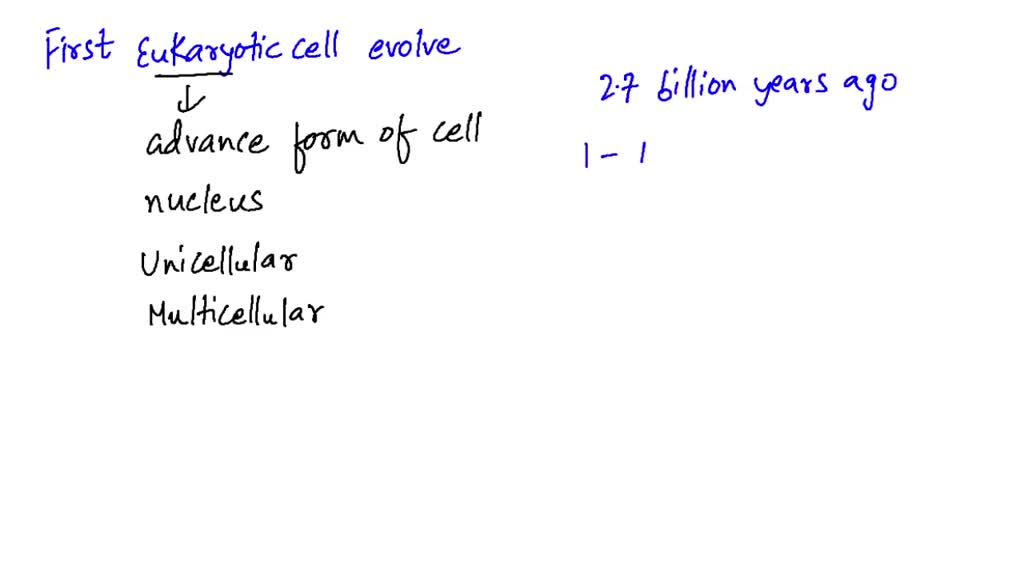 First Eukaryotic cell evolve
2.7 billion years ago
advance form of cell
1 - 1
nucleus
Unicellular
Multicellular